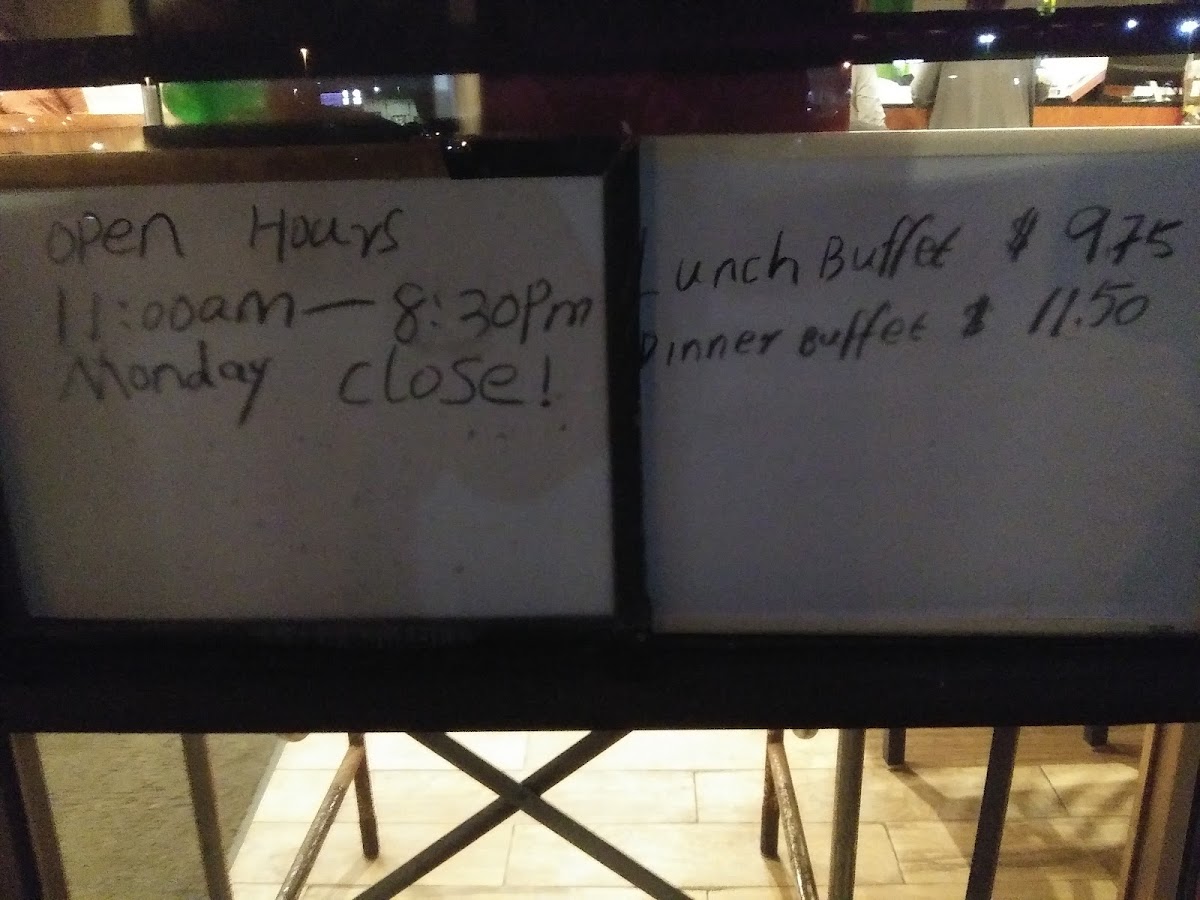 open Hours
11:00am - 8:30pm
Monday close!
Lunch Buffet $ 9.75
Dinner Buffet $ 11.50